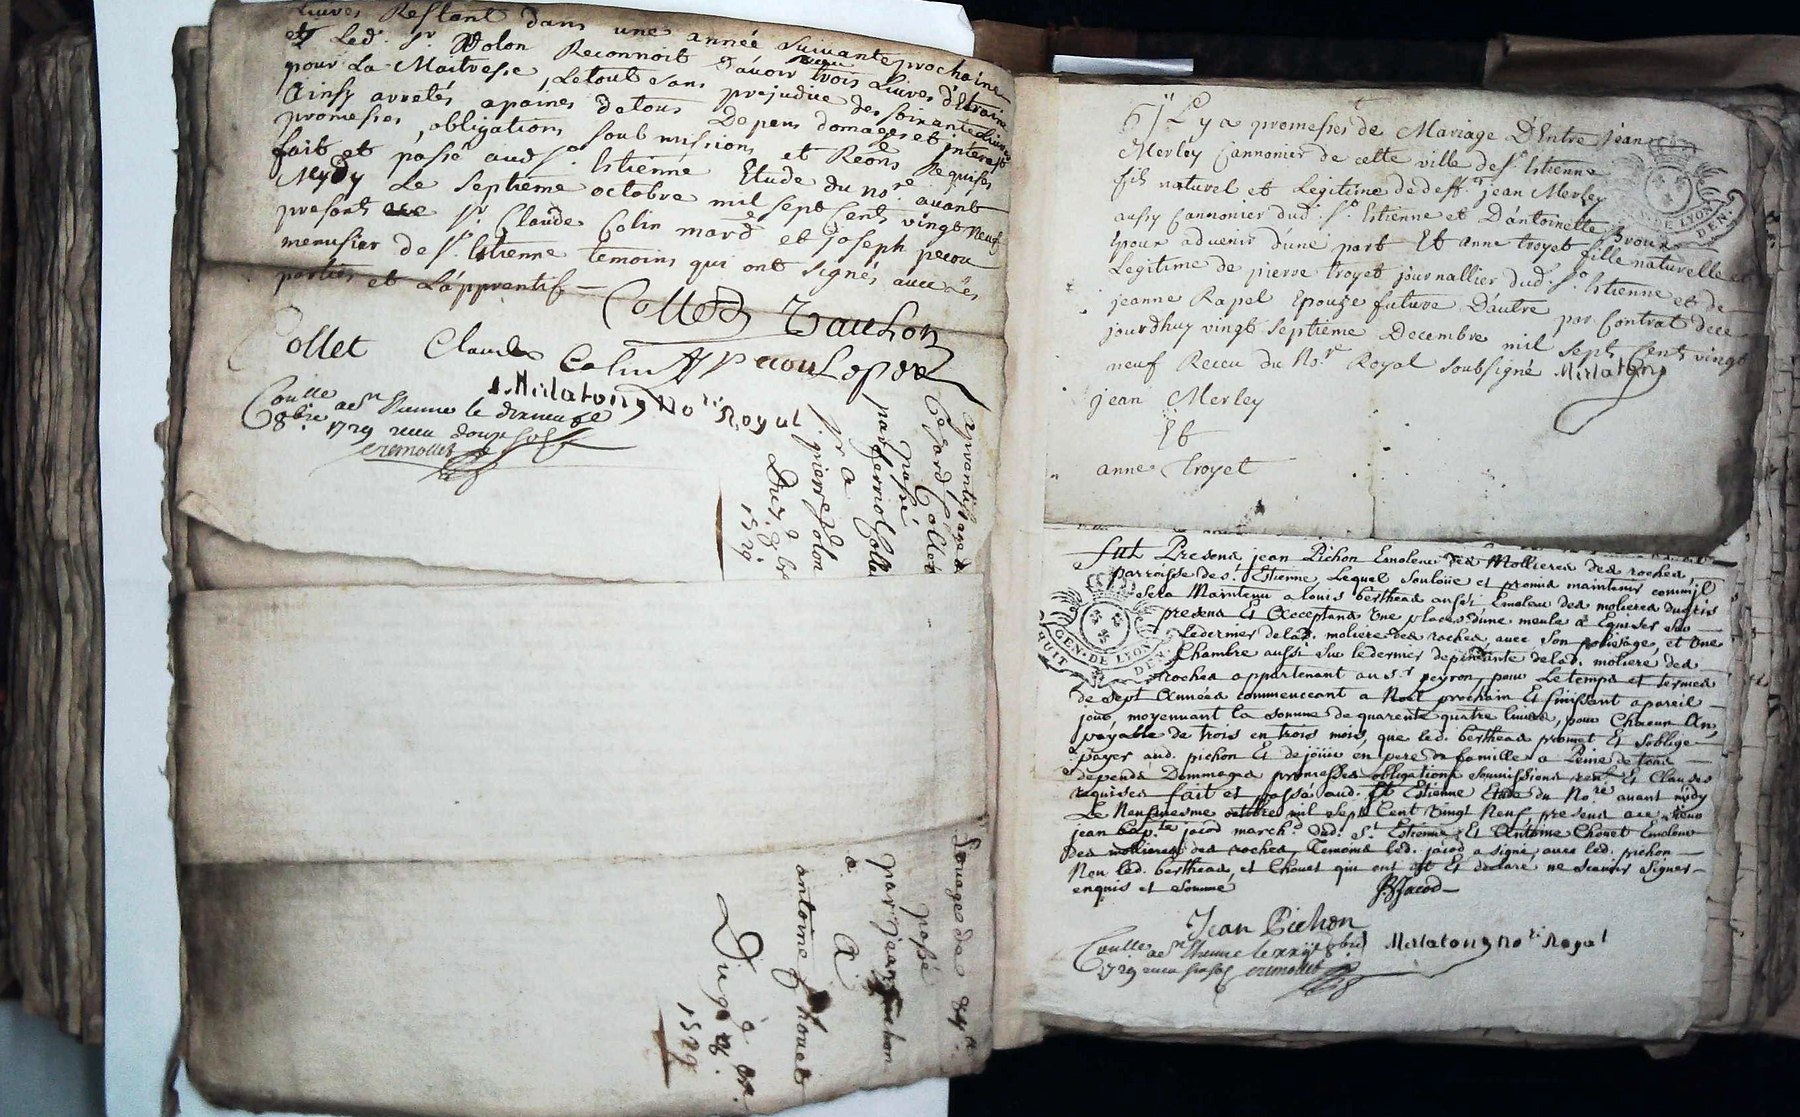 Livres Restant dans une année suivante prochaine
et Led. Sr. Holon Reconnoit d'avoir reçu trois Livres d'Etraine
pour La Maitresse, Letout sans prejudice des soixante Livres
Ainsy arretés apaines detous Depens domages et interest
promesses, obligations soubmissions et Reons Requises
fait et passé aud. St. Estienne Etude du nore. avant
Mydy Le septieme octobre mil sept Cents vingt Neuf
presents sr. Claude Colin mard. et joseph pecou
menusier de St. Estienne temoins qui ont signés avec Les
parties et L'apprentif
Collet
Collet Claude Colin
Mulatong No.re Royal
Conllé a St Etienne le
8bre 1729 receu douze sols
cremollet
apprentissage de
Collet
passé
par ferriol Collet
a
sr. pierre holon
Du 7e 8bre
1729
Louage de
passé
par jean pichon
a
antoine Chouet
Du 9e 8bre
1729
Il y a promesses de Mariage D'Entre jean
Merley Cannonier de cette ville de St. Estienne
fils naturel et Legitime de defft. jean Merley
aussy Cannonier dud. St. Estienne et D'antoinette Broux
Epoux advenir d'une part Et anne troyet fille naturelle et
Legitime de pierre troyet journallier dud. St. Estienne et de
jeanne Rapel Epouze future D'autre par Contrat de ce
jourdhuy vingt septieme Decembre mil sept Cents vingt
neuf Receu du Nore. Royal soubsigné Mulatong
jean Merley
Et
anne troyet
GEN. DE LYON
fut Present jean Pichon Emoleur des Mollieres des roches,
parroisse de St. Estienne, Lequel souloüe et promis maintenir comme il
sera Maintenu a louis bertheas aussi Emoleur des molieres
present Et Acceptant Une place d'une meule a Eguiser sur
Ledernier delad. moliere des roches, avec son polissage, et Une
Chambre aussi sur ledernier delad. moliere des
roches appartenant au sr peyron, pour Le temps et termes
de sept Années commenceant a Noel prochain Et finissant a pareil
jour, moyennant la somme de quarente quatre livres, pour Chacun An,
payable de trois en trois mois, que led. bertheas promet Et s'oblige
payer aud. pichon Et dejoüir en pere de famille a Peine de tous
depends Dommages promesses obligations soumissions Et Clauses
requises fait et passé aud. St Estienne Etude du No.re avant midy
Le Neufviesme octobre mil sept Cent Vingt Neuf, present
jean bap.te jacod march.d dud. St Estienne, Et Antoine Chouet Emoleur
des mollieres des roches, Temoins led. jacod a signé avec led. pichon
Non led. bertheas, et Chouet qui ont dit Et declaré ne scavoir signer
enquis et sommé
BJacod
Jean Pichon
Mulatong No.re Royal
Conllé a St Etienne le 8bre
1729 receu six sols cremollet
GEN. DE LYON